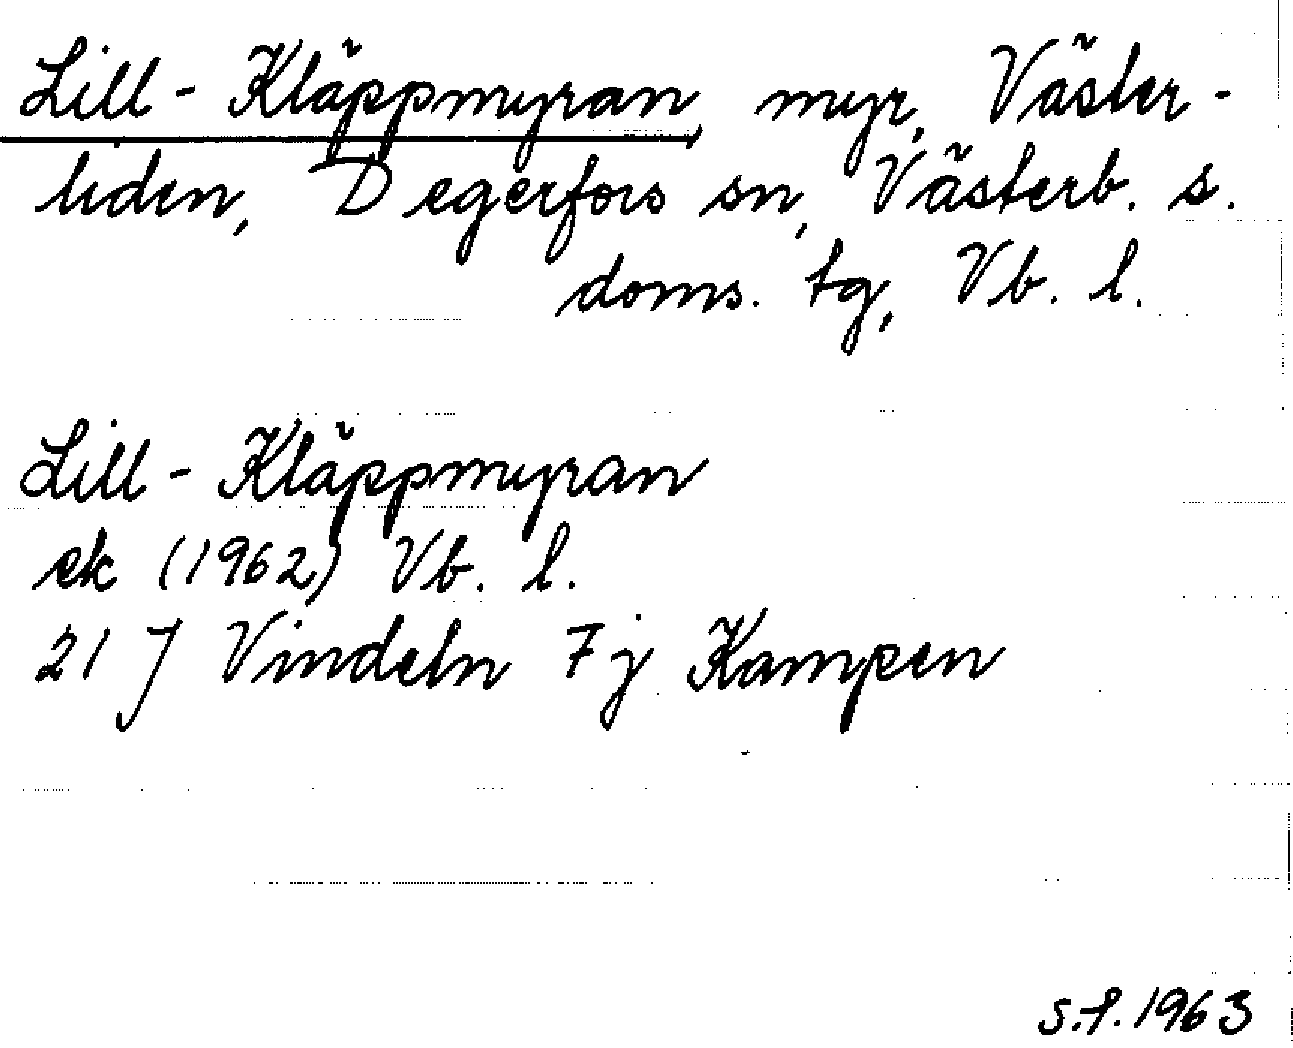 Lill-Kläppmyran, myr, Väster-
liden, Degerfors sn, Västerb. s.
doms. tg, Vb. l.
Lill-Kläppmyran
ek (1962) Vb. l.
21 J Vindeln 7j Kampen
s.f. 1963